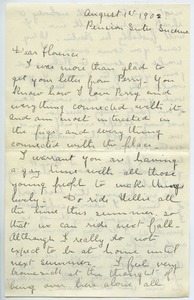 August 1st 1902
Pension
Dear Florence
I was more than glad to
get your letter from Perry. You
know how I love Perry and
everything connected with it
and am most interested in
the figs and everything
connected with the place.
I warrant you are having
a gay time with all those
young people to make things
lively. Do ride Nellie all
the time this summer, so
that we can ride next fall.
Although I really do not
expect to be at home until
next summer. I feel very
homesick at the thought of
being over here alone all